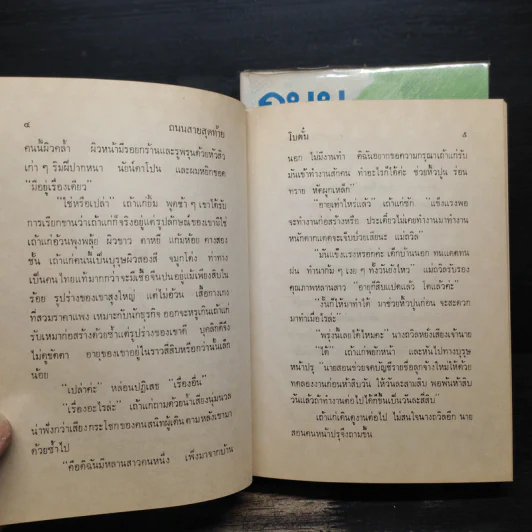 ๔ ถนนสายสุดท้าย
คนนี้ผิวคล้ำ ผิวหน้ามีรอยกร้านและรูพรุนด้วยหัวสิว
เก่า ๆ ริมฝีปากหนา นัยน์ตาโปน และผมหยิกขอด
"มีอยู่เรื่องเดียว"
"ใช่หรือเปล่า" เถ้าแก่ยิ้ม พูดช้ำ ๆ เขาได้รับ
การเรียกขานว่าเถ้าแก่ก็จริงอยู่แต่รูปลักษณ์ของเขามิใช่
เถ้าแก่อ้วนพุงพลุ้ย ผิวขาว ตาหยี แก้มห้อย คางสอง
ชั้น เถ้าแก่คนนี้เป็นบุรุษผิวสองสี จมูกโด่ง ท่าทาง
เป็นคนไทยแท้มากกว่าจะมีเชื้อจีนปนอยู่แม้เพียงสิบใน
ร้อย รูปร่างของเขาสูงใหญ่ แต่ไม่อ้วน เสื้อกางเกง
ที่สวมราคาแพง เหมาะกับนักธุรกิจ ออกจะหรูเกินเถ้าแก่
รับเหมาก่อสร้างด้วยซ้ำแต่รูปร่างของเขาดี บุคลิกดีจึง
ไม่ดูขัดตา อายุของเขาอยู่ในราวสี่สิบหรือกว่านั้นเล็ก
น้อย
"เปล่าค่ะ" หล่อนปฏิเสธ "เรื่องอื่น"
"เรื่องอะไรล่ะ" เถ้าแก่ถามด้วยน้ำเสียงนุ่มนวล
น่าฟังกว่าเสียงกระโชกของคนสนิทผู้เดินตามหลังเขามา
ด้วยซ้ำไป
"คือดิฉันมีหลานสาวคนหนึ่ง เพิ่งมาจากบ้าน
โบตั๋น ๕
นอก ไม่มีงานทำ ดิฉันอยากขอความกรุณาเถ้าแก่รับ
มันเข้าทำงานสักคน ทำอะไรก็ได้ค่ะ ช่วยหิ้วปูน ร่อน
ทราย หัดผูกเหล็ก"
"อายุเท่าไหร่แล้ว" เถ้าแก่ซัก "แข็งแรงพอ
จะทำงานก่อสร้างหรือ ประเดี๋ยวไม่เคยทำงานมาทำงาน
หนักตากแดดจะเจ็บป่วยเสียนะ แม่ถวิล"
"มันแข็งแรงหรอกค่ะ เด็กบ้านนอก ทนแดดทน
ฝน ทำนาก้ม ๆ เงย ๆ ทั้งวันยังไหว" แม่ถวิลรับรอง
คุณภาพหลานสาว "อายุก็สิบแปดแล้ว โตแล้วค่ะ"
"งั้นก็ให้มาทำได้ มาช่วยหิ้วปูนก่อน จะสะดวก
มาทำเมื่อไรล่ะ"
"พรุ่งนี้เลยได้ไหมคะ" นางถวิลหยั่งเสียงเจ้านาย
"ได้" เถ้าแก่พยักหน้า และหันไปทางบุรุษ
หน้าปรุ "นายสอนช่วยจดบัญชีรายชื่อลูกจ้างใหม่ให้ด้วย
ทดลองงานก่อนห้าสิบวัน ให้วันละสามสิบ พอพ้นห้าสิบ
วันแล้วถ้าทำงานต่อไปได้ก็ขึ้นเป็นวันละสี่สิบ"
เถ้าแก่เดินดูงานต่อไป ไม่สนใจนางถวิลอีก นาย
สอนคนหน้าปรุจึงถามขึ้น